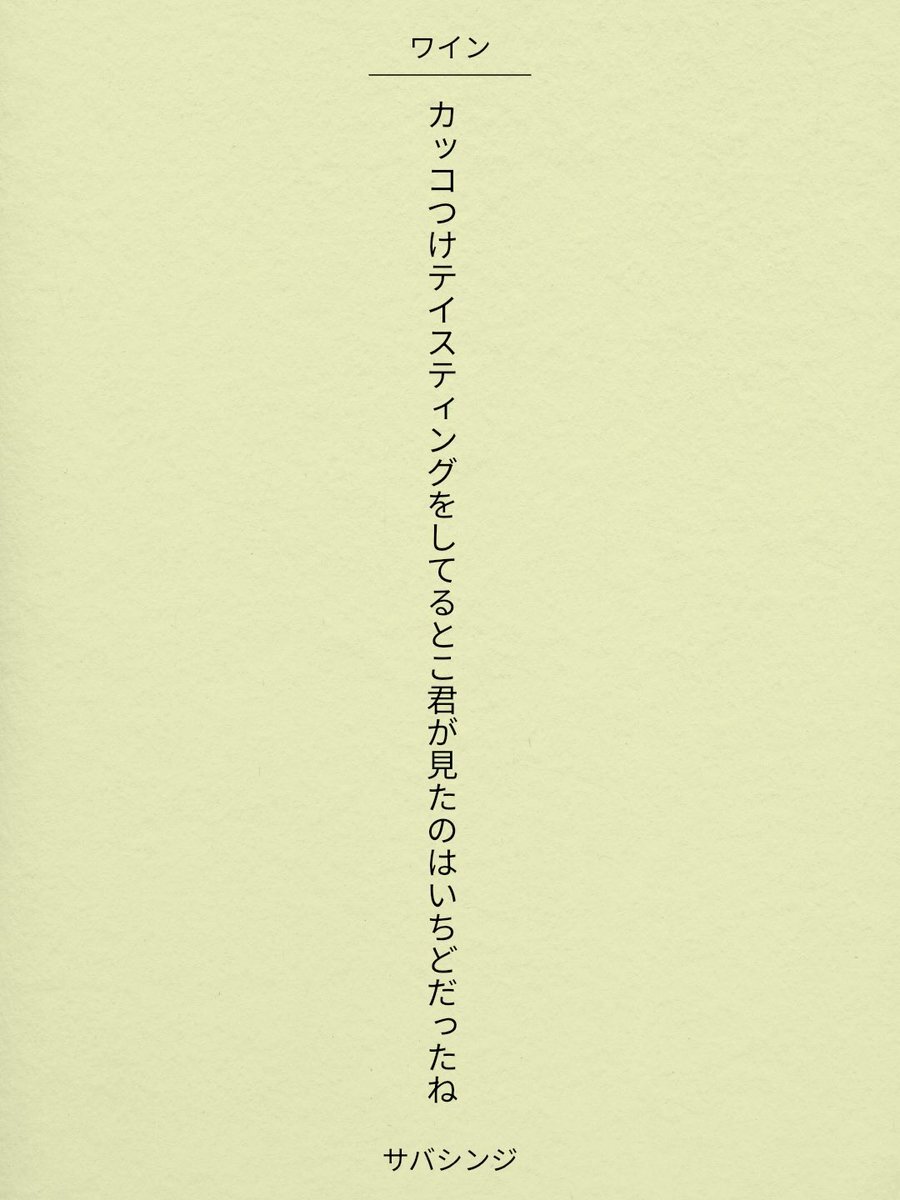 ワイン
カッコつけテイスティングをしてるとこ君が見たのはいちどだったね
サバシンジ